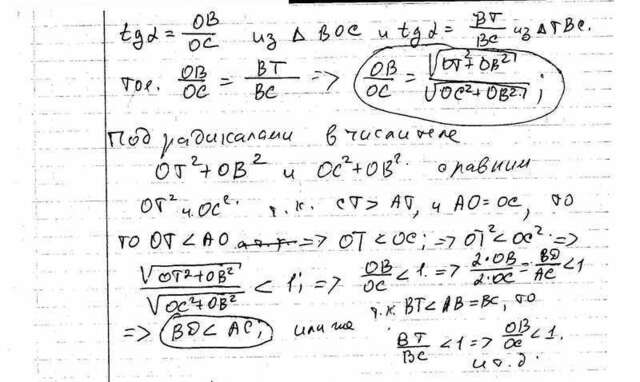 tgα = OB/OC из △ BOC и tgα = BT/BC из △TBC.
т.е. OB/OC = BT/BC => OB/OC = √(OT²+OB²)/√(OC²+OB²);
Под радикалами в числителе
OT²+OB² и OC²+OB². сравним
OT² и OC². т.к. CT > AT, и AO = OC, то
то OT < AO => OT < OC; => OT² < OC² =>
√(OT²+OB²)/√(OC²+OB²) < 1; => OB/OC < 1. => 2·OB/2·OC = BD/AC < 1
т.к BT < AB = BC, то
=> BD < AC; или же BT/BC < 1 => OB/OC < 1.
и т.д.